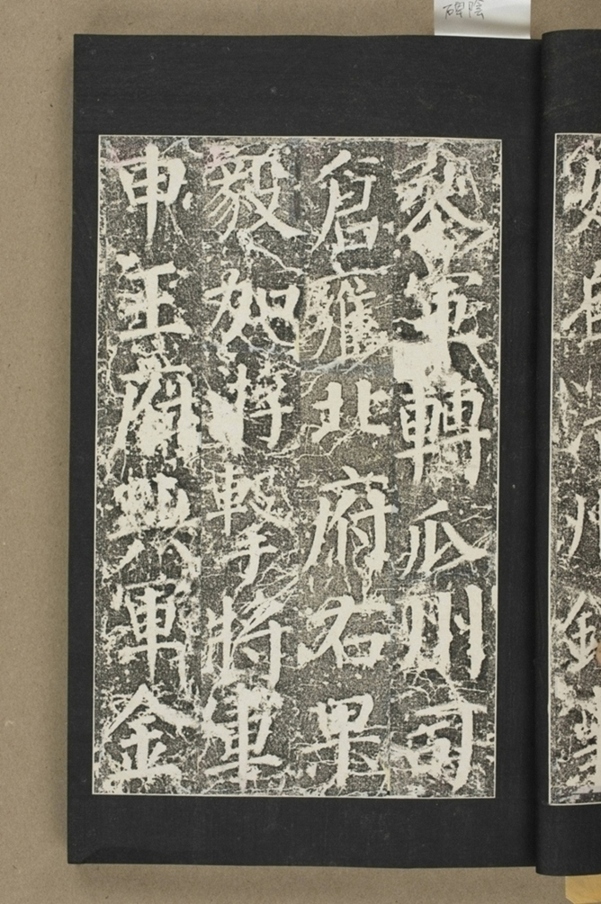 參軍轉瓜州司
倉雍北府右果
毅加游擊將軍
申王府典軍金